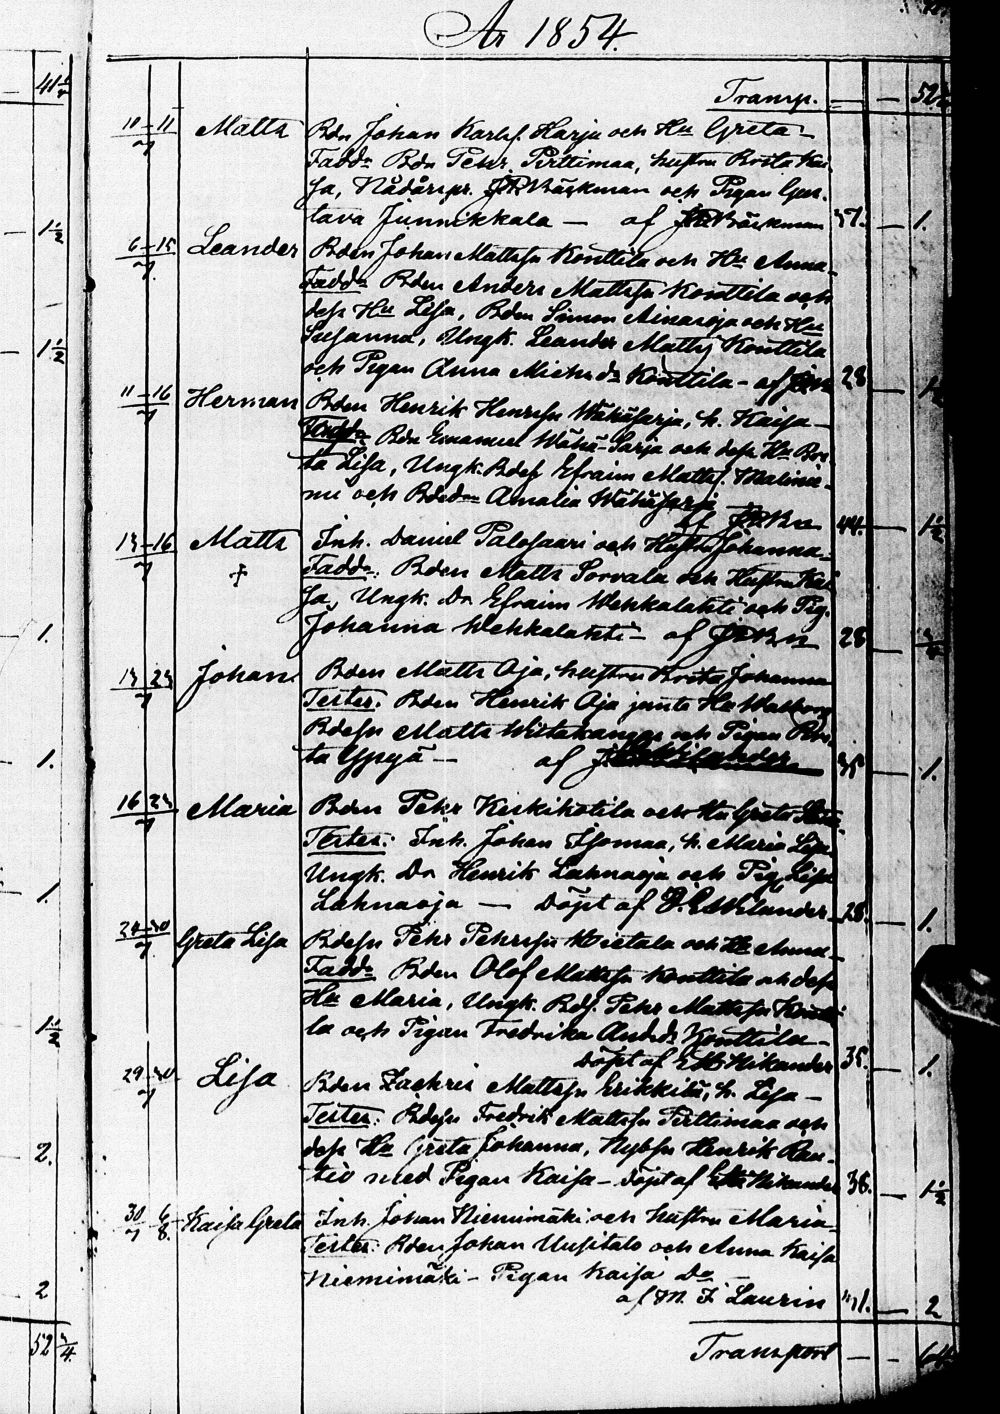 År 1854.
41
Transp. — — 52
10–11/7 Matts Bdn Johan Karlss. Harju och Hu Greta –
Fadd: Bdn Pehr Perttimaa, hustru Brita Kai-
sa, Nådårspr. Bäckman och Pigan Gus-
tava Junnikkala — af Bäckman 37. — 1.
1 1/2
6–15/7 Leander Bden Johan Mattsson Konttila och Hu Anna
Fadd: Bden Anders Mattsson Konttila och
dess Hu Lisa, Bden Simon Ainasoja och Hu
Susanna, Ungk. Leander Matts Konttila
1 1/2
och Pigan Anna Michsdr Konttila – af 28 — 1 1/2
11–16/7 Herman Bden Henrik Henrsson Wähäsarja, h. Kaisa –
Fadd: Bdn Emanuel Wähä-Sarja och dess Hu Bri-
ta Lisa, Ungk. Bdess Efraim Matts.
och Bdedr Amalia Wähäsarja
af 44. — 1 1/2
13–16/7 Matts + Inh. Daniel Palosaari och Hustru Johanna –
Fadd: Bden Matts Sorvala och Hustru Kai-
sa, Ungk. Dr Efraim Wehkalahti och Pig.
1.
Johanna Wehkalahti – af 28 — 3/4
13 23/7 Johan. Bden Matts Oja, hustru Brita Johanna
Testes: Bden Henrik Oja jemte Hu Walborg
Bdesson Matts Wiitakangas och Pigan Bri-
1.
ta Yppyä — af 35 — 1.
16 23/7 Maria Bden Pehr Keskikotila och Hu Greta
Testes: Inh. Johan Isomaa, h. Maria Lisa,
Ungk. Dr Henrik Lahnaoja och Pig. Lisa
1.
Lahnaoja — Döpt af Welander 28. — 1.
24–30/7 Greta Lisa Bdesson Pehr Pehrsson Hietala och Hu Anna –
Fadd: Bden Olof Mattsson Konttila och dess
Hu Maria, Ungk. Bds. Pehr Mattsson Kontti-
1 1/2
la och Pigan Fredrika Andsdr Konttila –
Döpt af Nikander 35. — 1.
29–30/7 Lisa Bden Zachris Mattsson Erikkilä, h. Lisa –
Testes: Bdesson Fredrik Mattsson Perttimaa och
2.
dess Hu Greta Johanna, Nybsn Henrik Rau-
tio med Pigan Kaisa – döpt af Nikander 36. — 1 1/2
30/7 6/8. Kaisa Greta Inh. Johan Niemimäki och hustru Maria
Testes: Bden Johan Uusitalo och Anna Kaisa
Niemimäki – Pigan Kaisa Do
2
af M. F. Laurin 41. — 2
52 3/4.
Transport — —